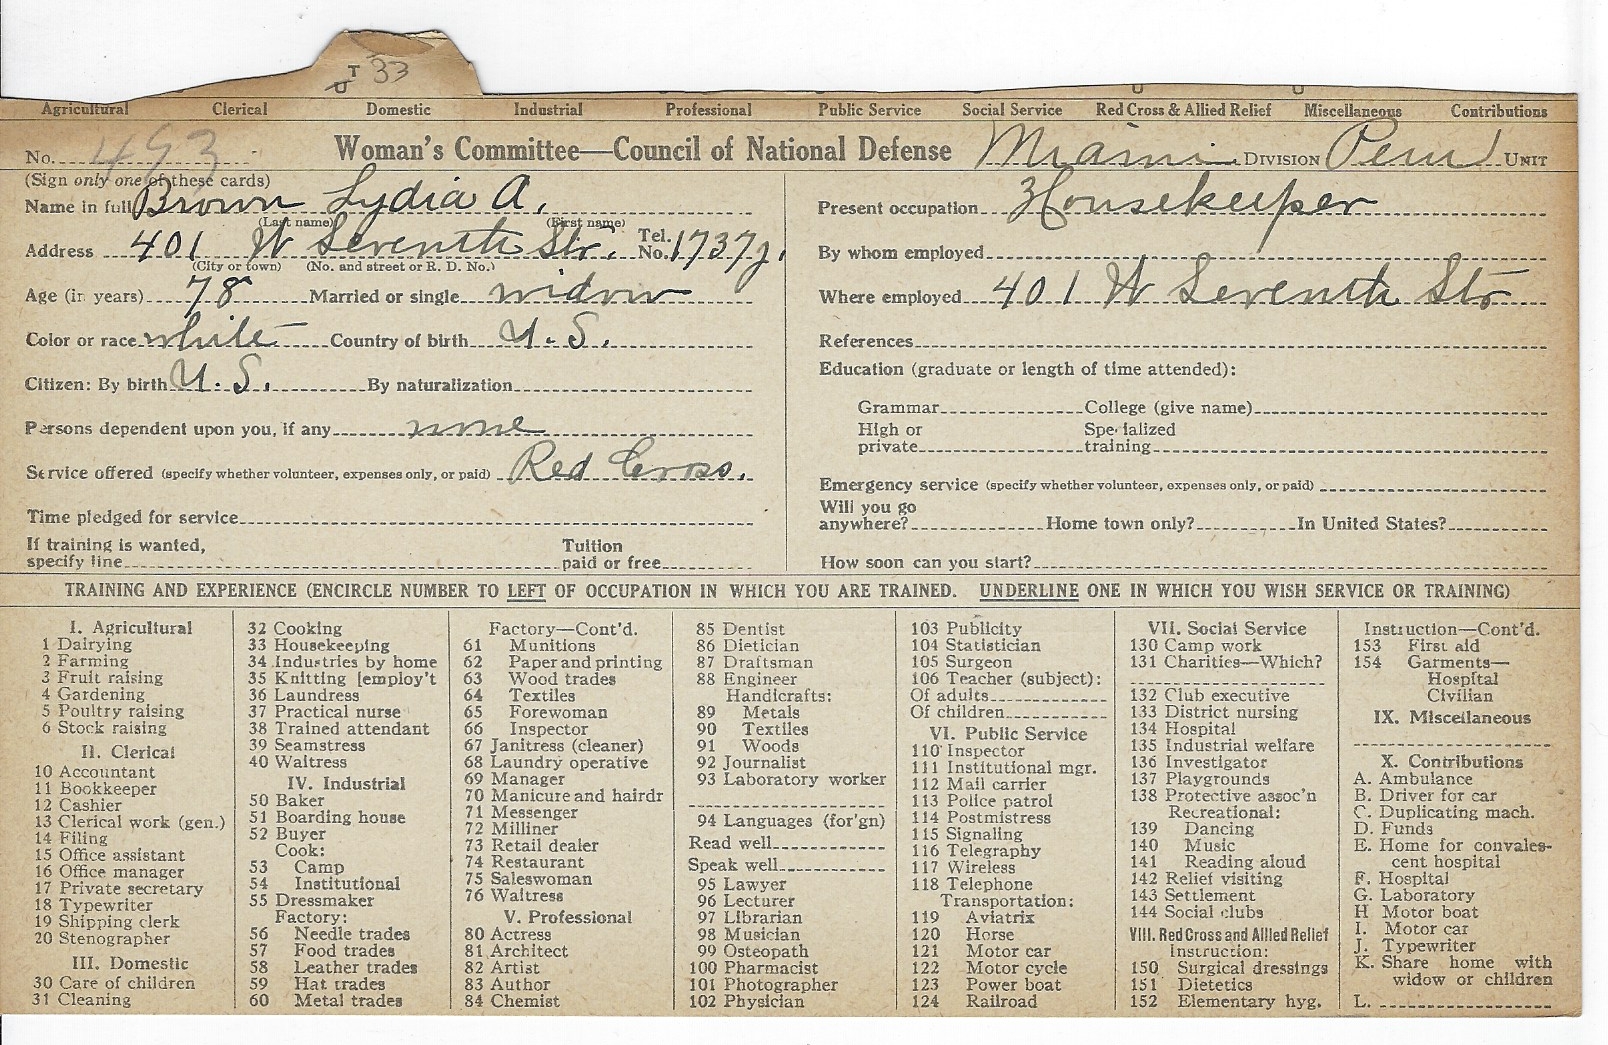 T 33
U
Agricultural Clerical Domestic Industrial Professional Public Service Social Service Red Cross & Allied Relief Miscellaneous Contributions
No. 493 Woman's Committee—Council of National Defense Miami DIVISION Peru UNIT
(Sign only one of these cards)
Name in full Brown Lydia A.
(Last name) (First name)
Address 401 W Seventh Str. Tel. No. 1737J.
(City or town) (No. and street or R. D. No.)
Age (in years) 78 Married or single widow
Color or race white Country of birth U.S.
Citizen: By birth U.S. By naturalization
Persons dependent upon you, if any none
Service offered (specify whether volunteer, expenses only, or paid) Red Cross.
Time pledged for service
If training is wanted, specify line Tuition paid or free
Present occupation Housekeeper
By whom employed
Where employed 401 W Seventh Str
References
Education (graduate or length of time attended):
Grammar College (give name)
High or private Specialized training
Emergency service (specify whether volunteer, expenses only, or paid)
Will you go anywhere? Home town only? In United States?
How soon can you start?
TRAINING AND EXPERIENCE (ENCIRCLE NUMBER TO LEFT OF OCCUPATION IN WHICH YOU ARE TRAINED. UNDERLINE ONE IN WHICH YOU WISH SERVICE OR TRAINING)
I. Agricultural
1 Dairying
2 Farming
3 Fruit raising
4 Gardening
5 Poultry raising
6 Stock raising
II. Clerical
10 Accountant
11 Bookkeeper
12 Cashier
13 Clerical work (gen.)
14 Filing
15 Office assistant
16 Office manager
17 Private secretary
18 Typewriter
19 Shipping clerk
20 Stenographer
III. Domestic
30 Care of children
31 Cleaning
32 Cooking
33 Housekeeping
34 Industries by home
35 Knitting [employ't
36 Laundress
37 Practical nurse
38 Trained attendant
39 Seamstress
40 Waitress
IV. Industrial
50 Baker
51 Boarding house
52 Buyer
Cook:
53 Camp
54 Institutional
55 Dressmaker
Factory:
56 Needle trades
57 Food trades
58 Leather trades
59 Hat trades
60 Metal trades
Factory—Cont'd.
61 Munitions
62 Paper and printing
63 Wood trades
64 Textiles
65 Forewoman
66 Inspector
67 Janitress (cleaner)
68 Laundry operative
69 Manager
70 Manicure and hairdr
71 Messenger
72 Milliner
73 Retail dealer
74 Restaurant
75 Saleswoman
76 Waitress
V. Professional
80 Actress
81 Architect
82 Artist
83 Author
84 Chemist
85 Dentist
86 Dietician
87 Draftsman
88 Engineer
Handicrafts:
89 Metals
90 Textiles
91 Woods
92 Journalist
93 Laboratory worker
94 Languages (for'gn)
Read well
Speak well
95 Lawyer
96 Lecturer
97 Librarian
98 Musician
99 Osteopath
100 Pharmacist
101 Photographer
102 Physician
103 Publicity
104 Statistician
105 Surgeon
106 Teacher (subject):
Of adults
Of children
VI. Public Service
110 Inspector
111 Institutional mgr.
112 Mail carrier
113 Police patrol
114 Postmistress
115 Signaling
116 Telegraphy
117 Wireless
118 Telephone
Transportation:
119 Aviatrix
120 Horse
121 Motor car
122 Motor cycle
123 Power boat
124 Railroad
VII. Social Service
130 Camp work
131 Charities—Which?
132 Club executive
133 District nursing
134 Hospital
135 Industrial welfare
136 Investigator
137 Playgrounds
138 Protective assoc'n
Recreational:
139 Dancing
140 Music
141 Reading aloud
142 Relief visiting
143 Settlement
144 Social clubs
VIII. Red Cross and Allied Relief
Instruction:
150 Surgical dressings
151 Dietetics
152 Elementary hyg.
Instruction—Cont'd.
153 First aid
154 Garments—
Hospital
Civilian
IX. Miscellaneous
X. Contributions
A. Ambulance
B. Driver for car
C. Duplicating mach.
D. Funds
E. Home for convales-
cent hospital
F. Hospital
G. Laboratory
H Motor boat
I. Motor car
J. Typewriter
K. Share home with
widow or children
L.